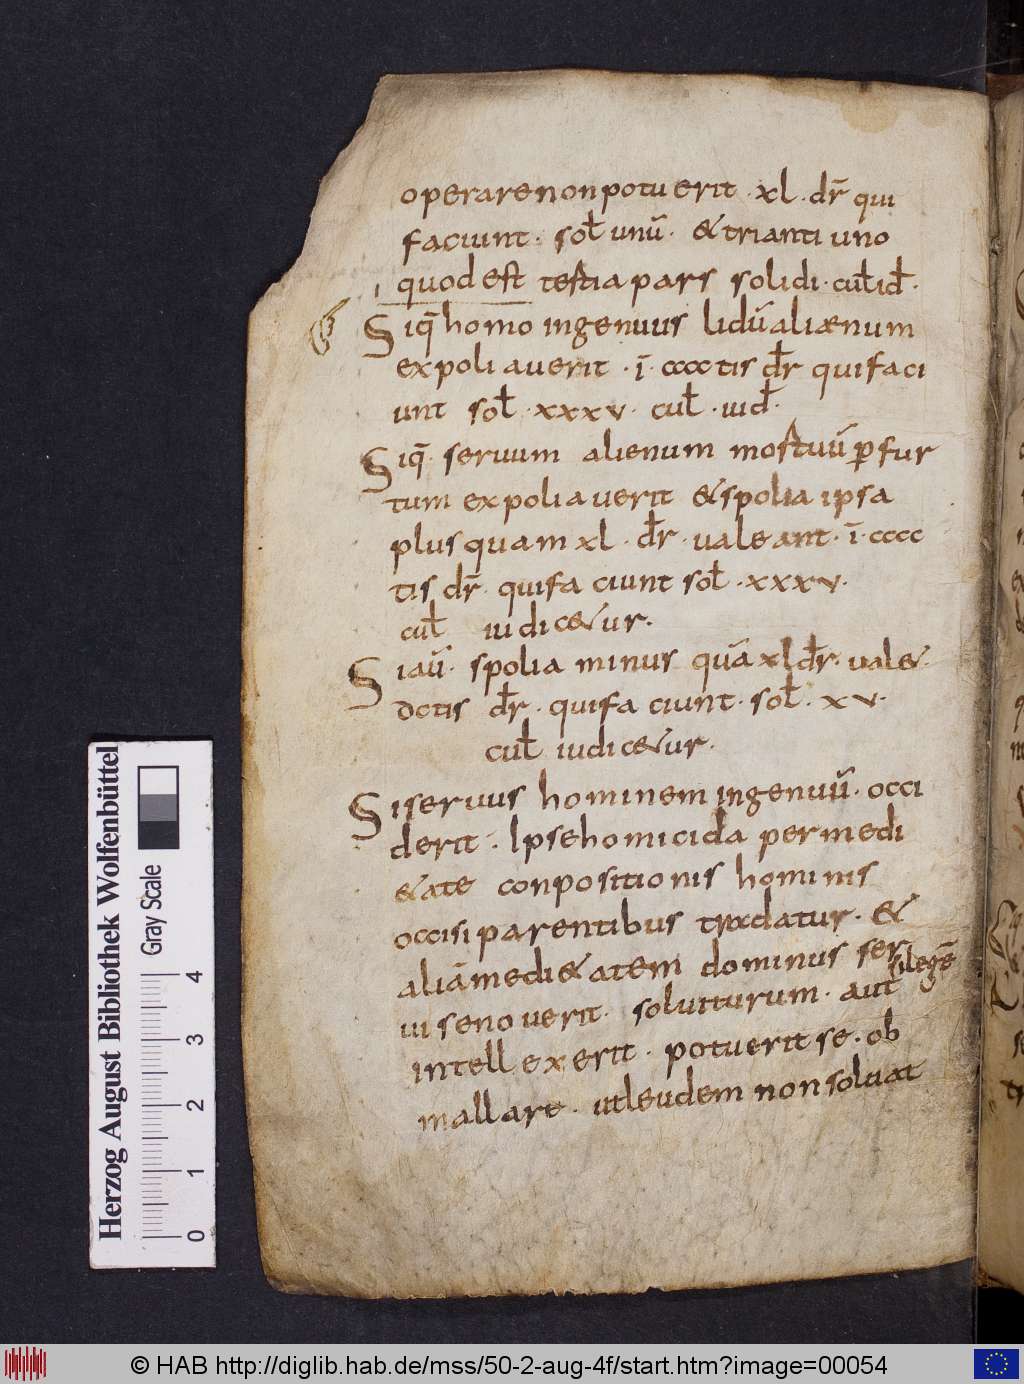 operare non potuerit · xl · dr̄ qui
faciunt · sol̄ unū · & trianti uno
quod est testia pars solidi · cul̄ id̄ ·
Siq̄ homo ingenuus lidū aliænum
expoliauerit · ī · cccc tis dr̄ qui faci
unt sol̄ · xxxv · cul̄ · iud̄ ·
Siq̄ · seruum alienum mostuū p̄ fur
tum expoliauerit & spolia ipsa
plus quam xl · dr̄ · ualeant · ī · cccc
tis dr̄ · qui faciunt sol̄ · xxxv ·
cul̄ iudicetur .
Si aū · spolia minus quā xl dr̄ · ualet ·
dctis dr̄ · qui faciunt · sol̄ · xv ·
cul̄ iudicetur .
Si seruus hominem ingenuū · occi
derit · Ipse homicida per medi
etate conpositionis hominis
occisi parentibus tradatur · &
aliā medietatem dominus ser
ui se nouerit · soluiturum · aut si legē
intellexerit · potuerit se · ob
mallare · ut leudem non soluat
Herzog August Bibliothek Wolfenbüttel
Gray Scale
0 1 2 3 4
© HAB http://diglib.hab.de/mss/50-2-aug-4f/start.htm?image=00054